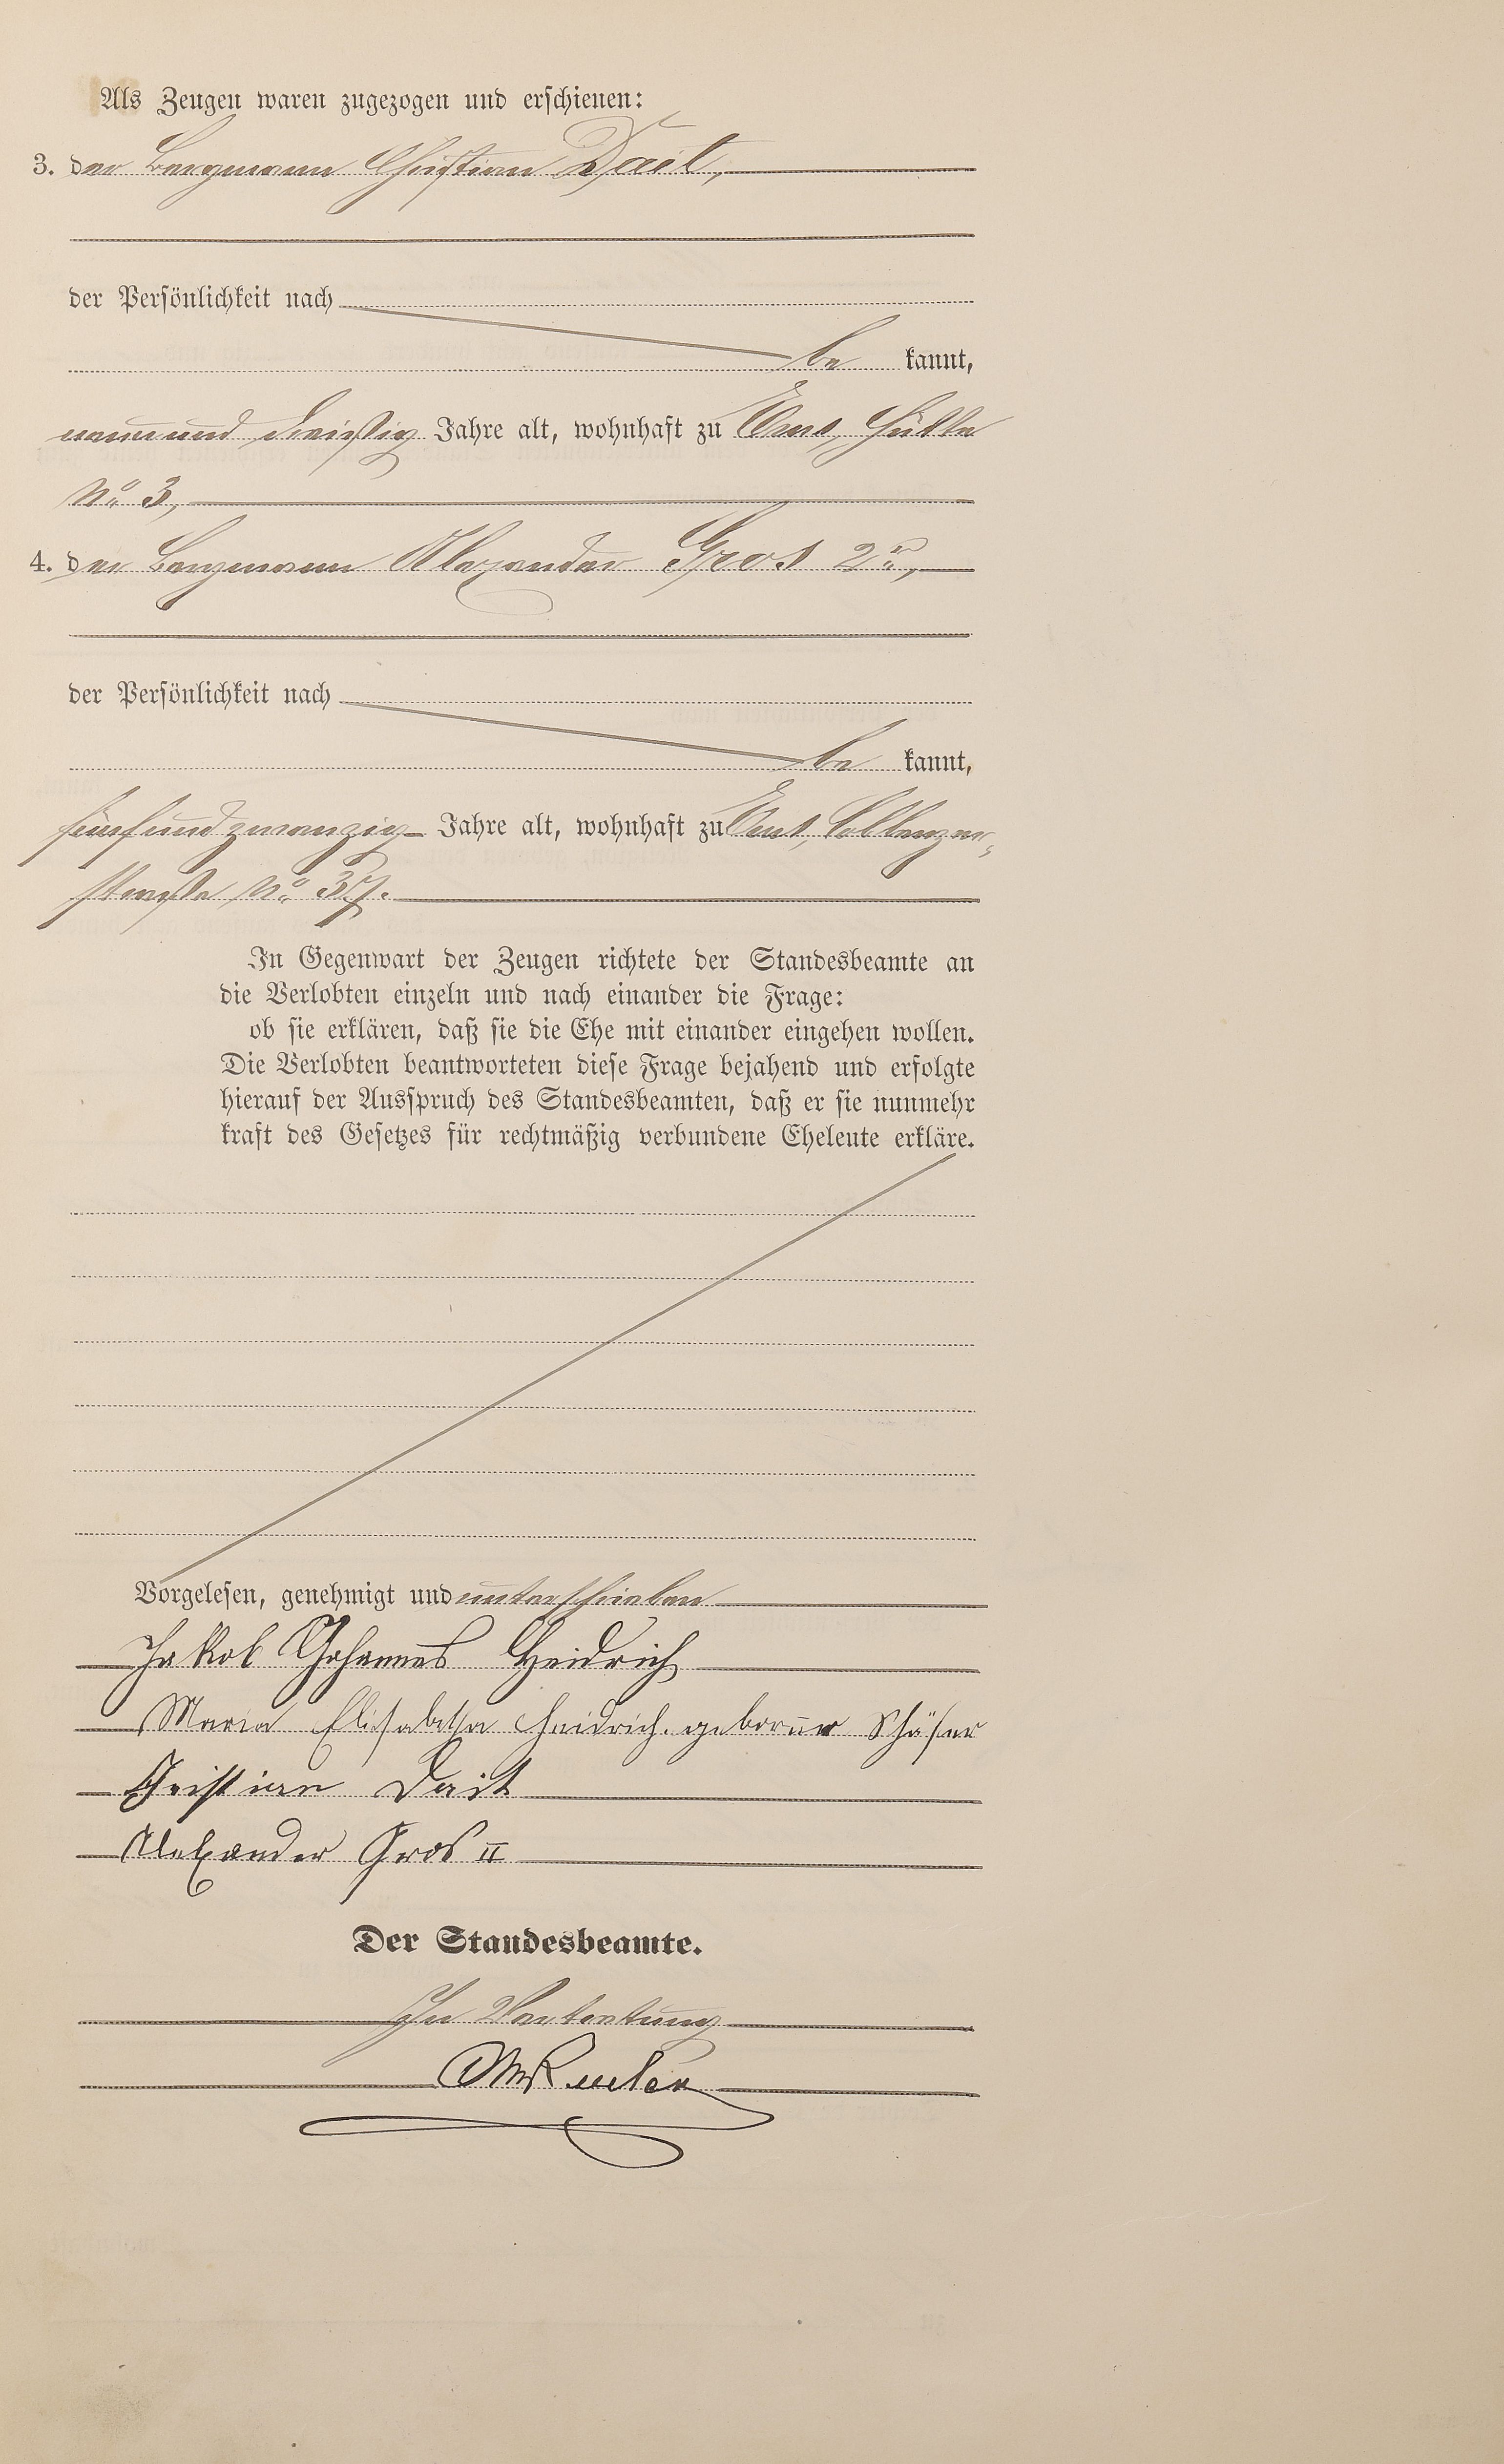 Als Zeugen waren zugezogen und erschienen:
3. der Bergmann Christian Dait,
der Persönlichkeit nach
be kannt,
neunund dreißig Jahre alt, wohnhaft zu Ems, Hütte
No 3,
4. der Bergmann Alexander Gros 2r,
der Persönlichkeit nach
be kannt,
fünfundzwanzig Jahre alt, wohnhaft zu Ems, Coblenzer-
straße No 37.
In Gegenwart der Zeugen richtete der Standesbeamte an
die Verlobten einzeln und nach einander die Frage:
ob sie erklären, daß sie die Ehe mit einander eingehen wollen.
Die Verlobten beantworteten diese Frage bejahend und erfolgte
hierauf der Ausspruch des Standesbeamten, daß er sie nunmehr
kraft des Gesetzes für rechtmäßig verbundene Eheleute erkläre.
Vorgelesen, genehmigt und unterschrieben
Jakob Johannes Heidrich
Maria Elisabetha Heidrich geborene Schäfer
Christian Dait
Alexander Gros II
Der Standesbeamte.
In Vertretung